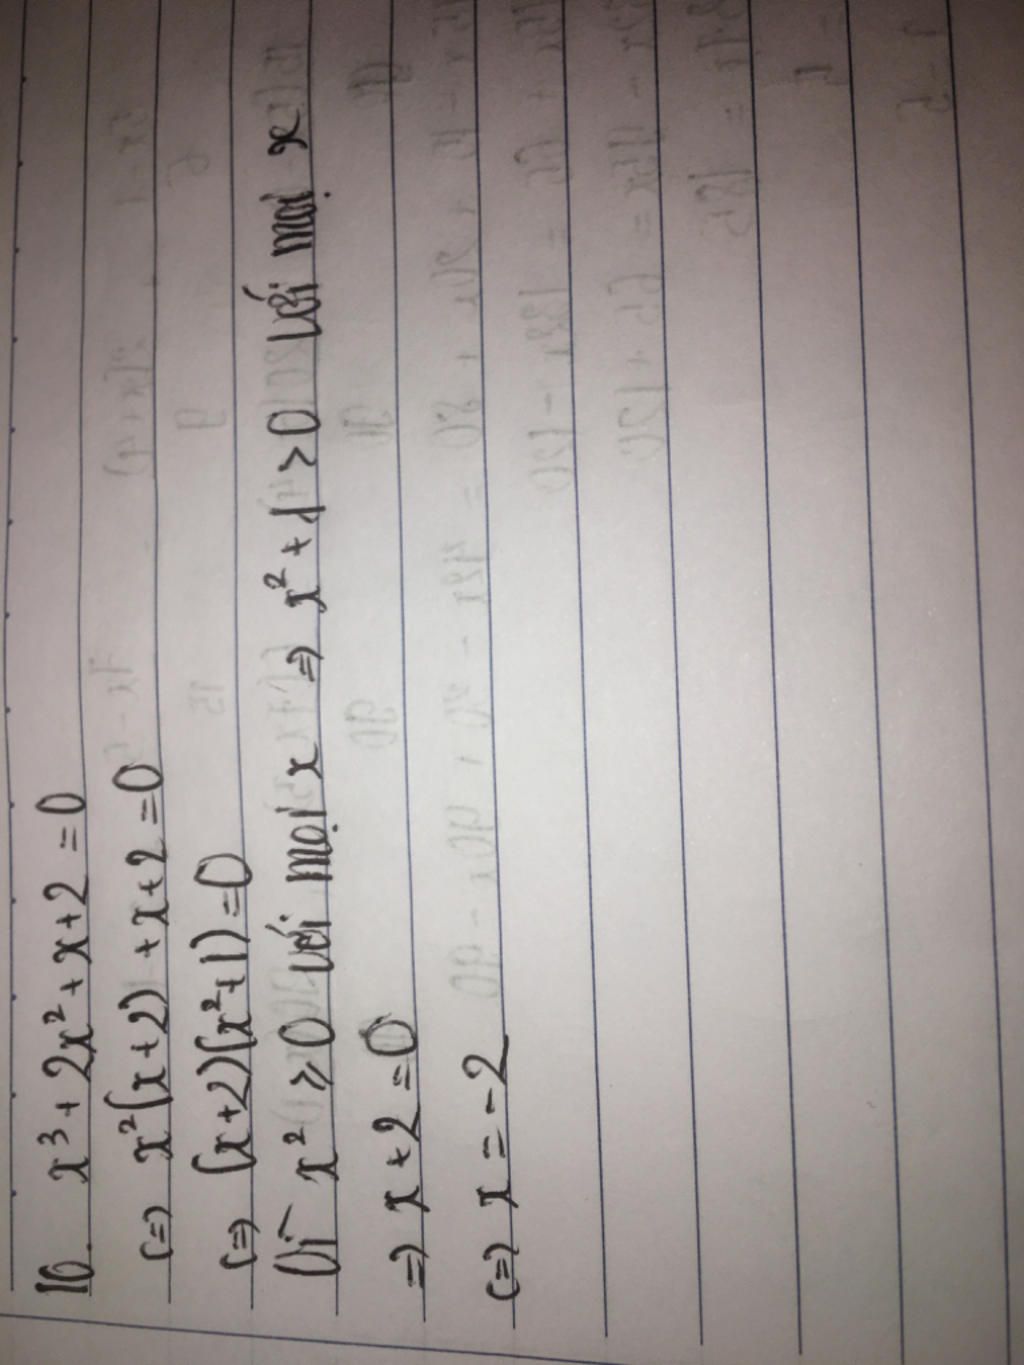 10. x³ + 2x² + x + 2 = 0
(=) x²(x+2) + x + 2 = 0
(=) (x+2)(x²+1) = 0
Vì x² ≥ 0 với mọi x => x² + 1 > 0 với mọi x
=> x + 2 = 0
(=) x = -2